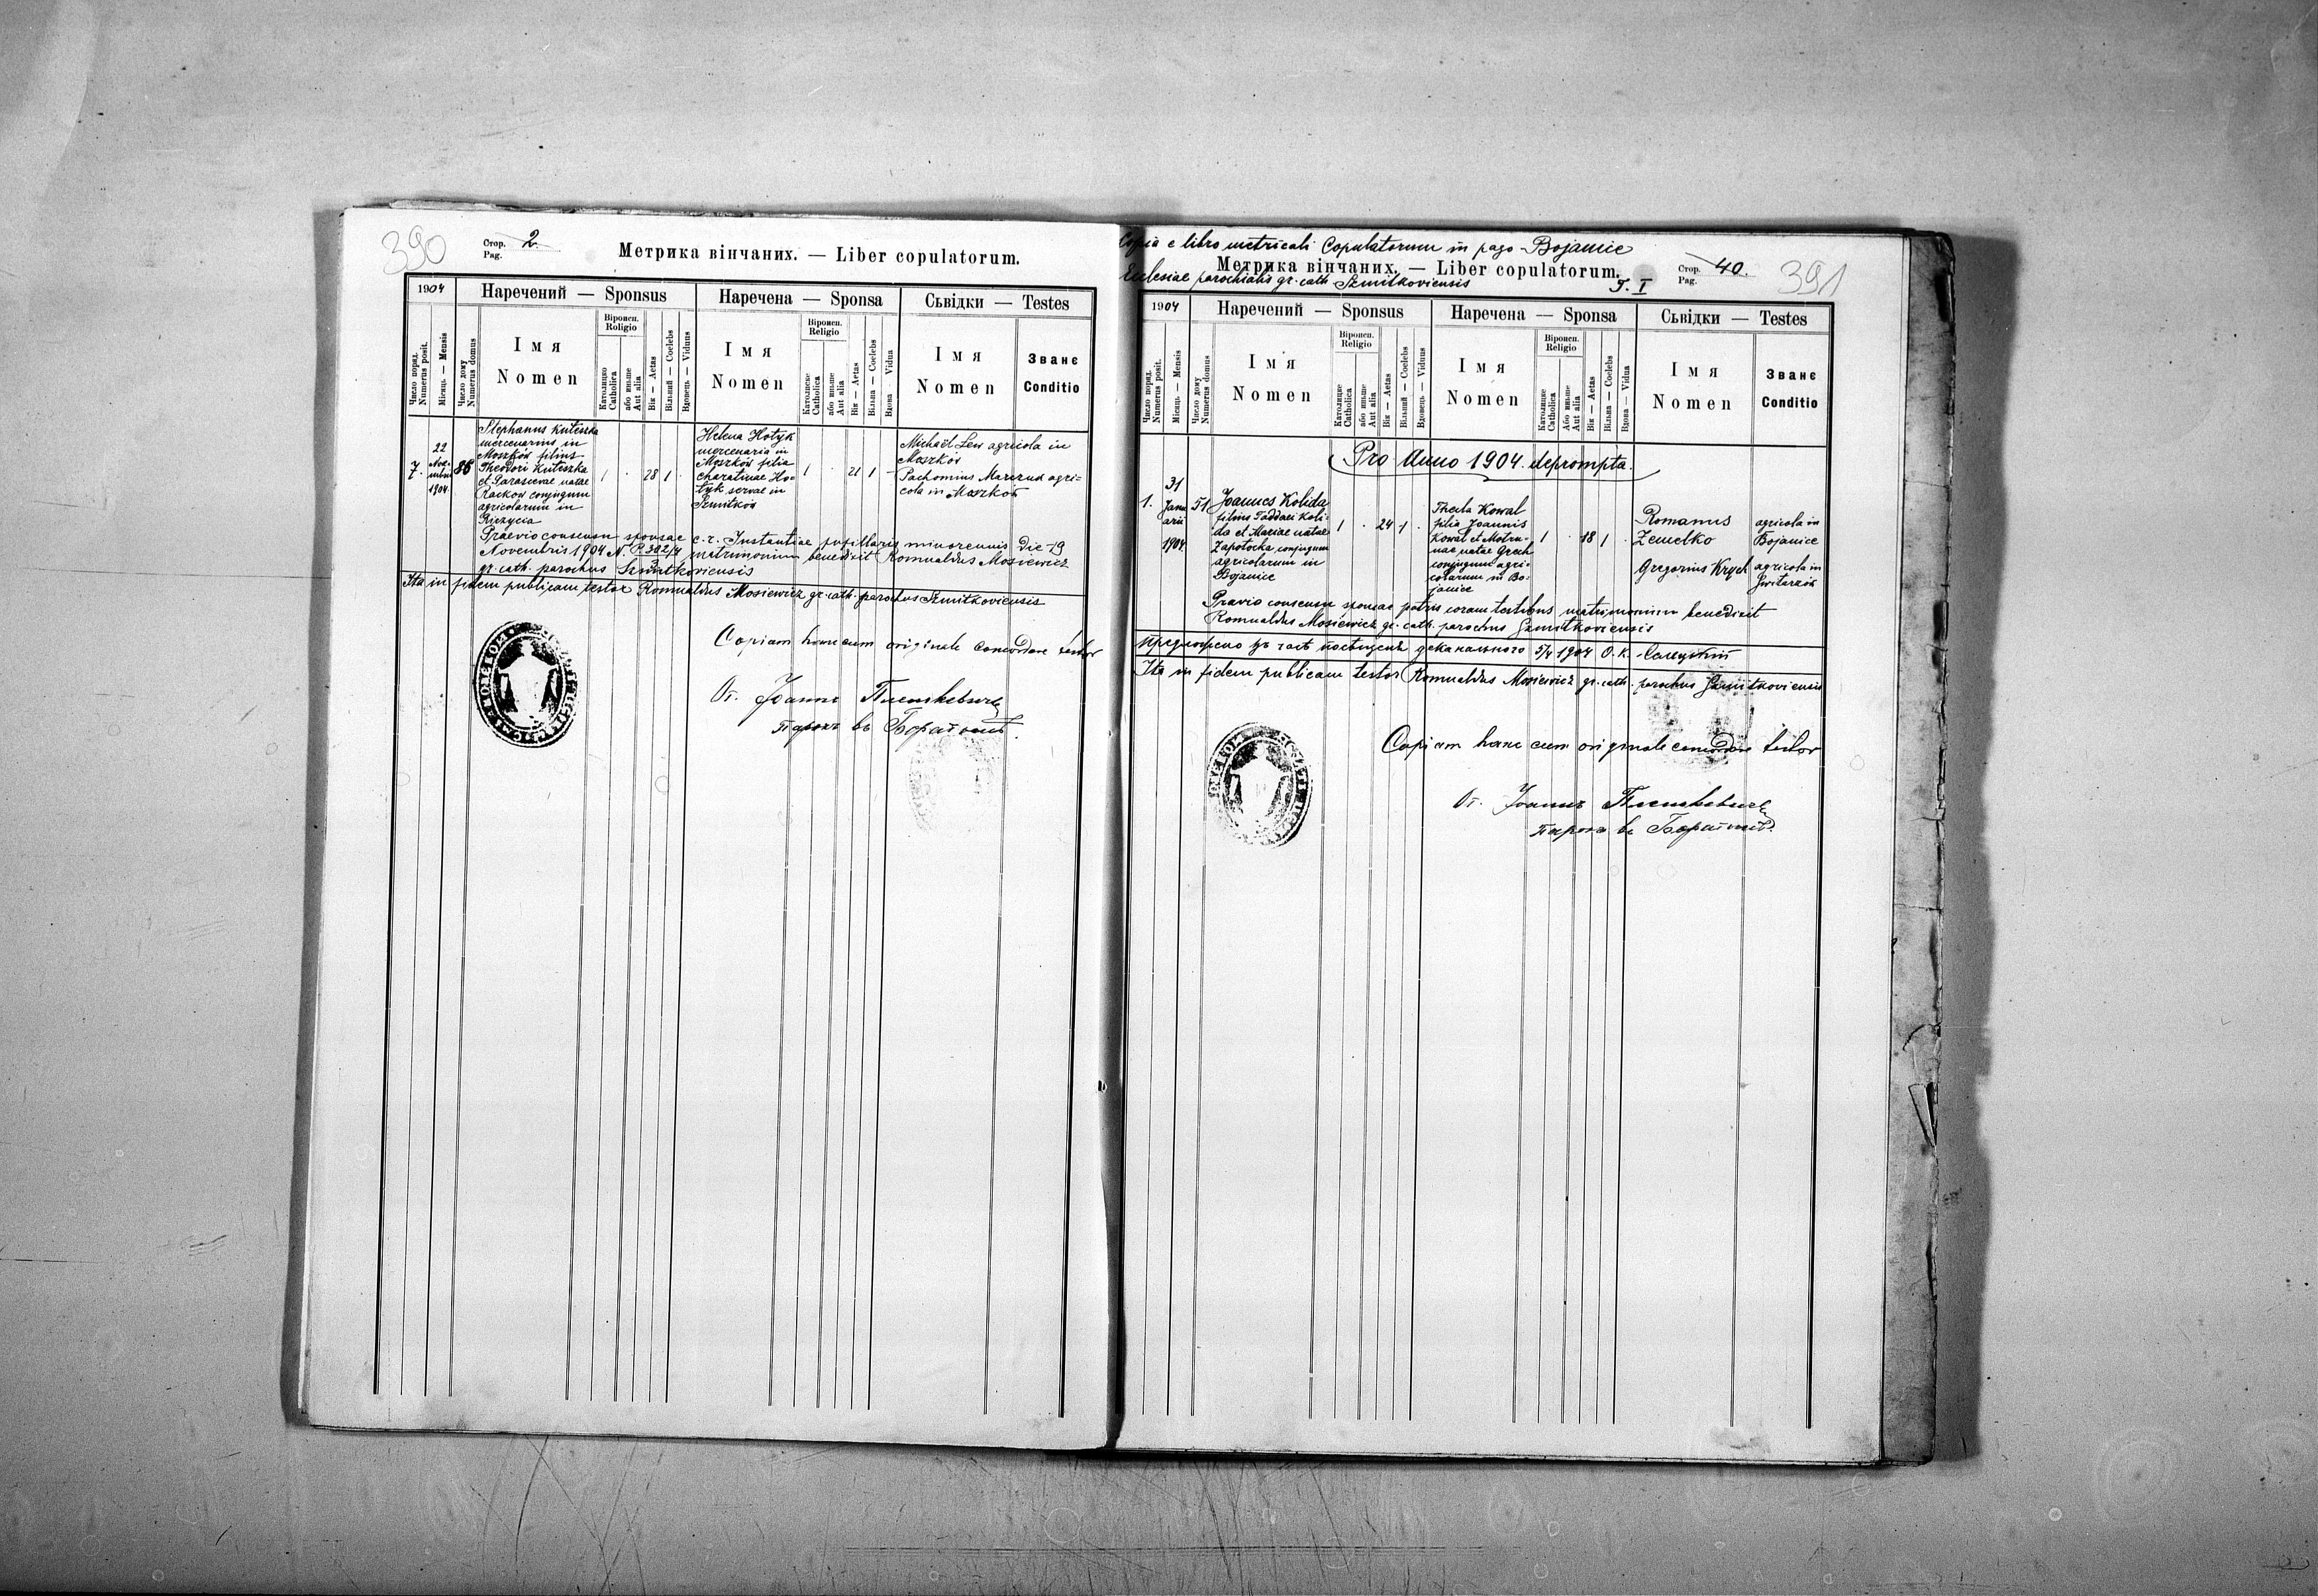 390
Стор. 2.
Pag.
Метрика вінчаних. — Liber copulatorum.
1904
Наречений — Sponsus
Наречена — Sponsa
Сьвідки — Testes
Число поряд.
Numerus posit.
Місяць — Mensis
Число дому
Numerus domus
Імя
Nomen
Віроисп.
Religio
Католицке
Catholica
або иньше
Aut alia
Вік — Aetas
Вільний — Coelebs
Вдовець — Viduus
Імя
Nomen
Віроисп.
Religio
Католицке
Catholica
або иньше
Aut alia
Вік — Aetas
Вільна — Coelebs
Вдова — Vidua
Імя
Nomen
Званє
Conditio
7.
22
Novembris
1904
86
Stephanus Kuteszka
mercenarius in
Moszków filius
Theodori Kuteszka
et Parascevae natae
Rackow conjugum
agricolarum in
1 . 28 1 .
Helena Hotyk
mercenaria in
Moszków filia
Charatinae Ho=
tyk servae in
Szmitków
1 . 21 1 .
Michaël Lew agricola in
Moszków
Pachomius Marczuk agri=
cola in Moszków
Praevio consensu sponsae c.r. Instantiae pupillaris minorennis die 19
Novembris 1904 N. P. 302/4 matrimonium benedixit Romualdus Mosiewicz
gr. cath. parochus Szmitkoviensis
Ita in fidem publicam testor Romualdus Mosiewicz gr. cath. parochus Szmitkoviensis
Copiam hanc cum originale concordare testor
От. Іоаннъ
парохъ въ
Copia e libro metricali Copulatorum in pago Bojanice
Метрика вінчаних. — Liber copulatorum.
Ecclesiae parochialis gr. cath. Szmitkoviensis
T. I
Стор. 40.
Pag.
391
1904
Наречений — Sponsus
Наречена — Sponsa
Сьвідки — Testes
Число поряд.
Numerus posit.
Місяць — Mensis
Число дому
Numerus domus
Імя
Nomen
Віроисп.
Religio
Католицке
Catholica
або иньше
Aut alia
Вік — Aetas
Вільний — Coelebs
Вдовець — Viduus
Імя
Nomen
Віроисп.
Religio
Католицке
Catholica
Або иньше
Aut alia
Вік — Aetas
Вільна — Coelebs
Вдова — Vidua
Імя
Nomen
Званє
Conditio
Pro Anno 1904 deprompta.
1.
31
Janu
arii
1904
51
Joannes Kolida
filius Taddaei Koli=
da et Mariae natae
Zapotocka conjugum
agricolarum in
Bojanice
1 . 24 1 .
Thecla Kowal
filia Joannis
Kowal et Motru=
nae natae Grech
conjugum agri=
colarum in Bo=
janice
1 . 18 1 .
Romanus
Zemelko
agricola in
Bojanice
Gregorius Krych
agricola in
Switarzów
Praevio consensu sponsae patris coram testibus matrimonium benedixit
Romualdus Mosiewicz gr. cath. parochus Szmitkoviensis
Предложено въ часъ посѣщенія деканального 5/4 1904 О. К.
Ita in fidem publicam testor Romualdus Mosiewicz gr. cath. parochus Szmitkoviensis
Copiam hanc cum originale concordare testor
От. Іоаннъ
парохъ въ